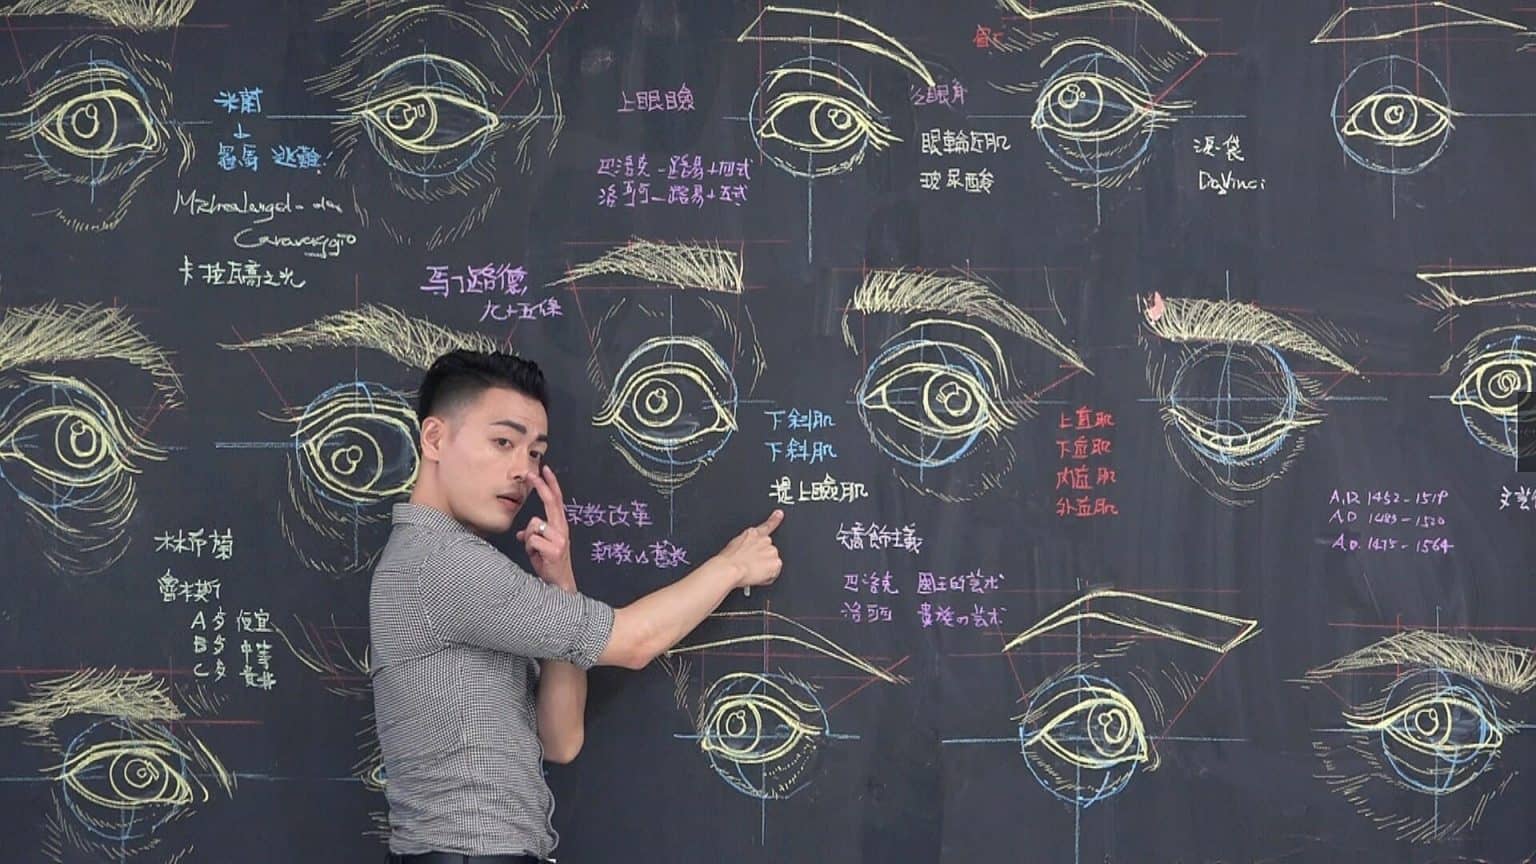 米蘭
逃難!
Caravaggio
卡拉瓦喬之光
馬丁路德
九十五條
上眼瞼
巴洛克-路易十四式
洛可可-路易十五式
眼輪匝肌
玻尿酸
淚袋
DaVinci
下斜肌
下斜肌
提上瞼肌
上直肌
下直肌
內直肌
外直肌
宗教改革
新教vs舊教
矯飾主義
巴洛克 國王的芸术
洛可可 貴族の芸术
A.D. 1452-1519
A.D 1483-1520
A.D. 1475-1564
林布蘭
魯本斯
A多 便宜
B多 中等
C多